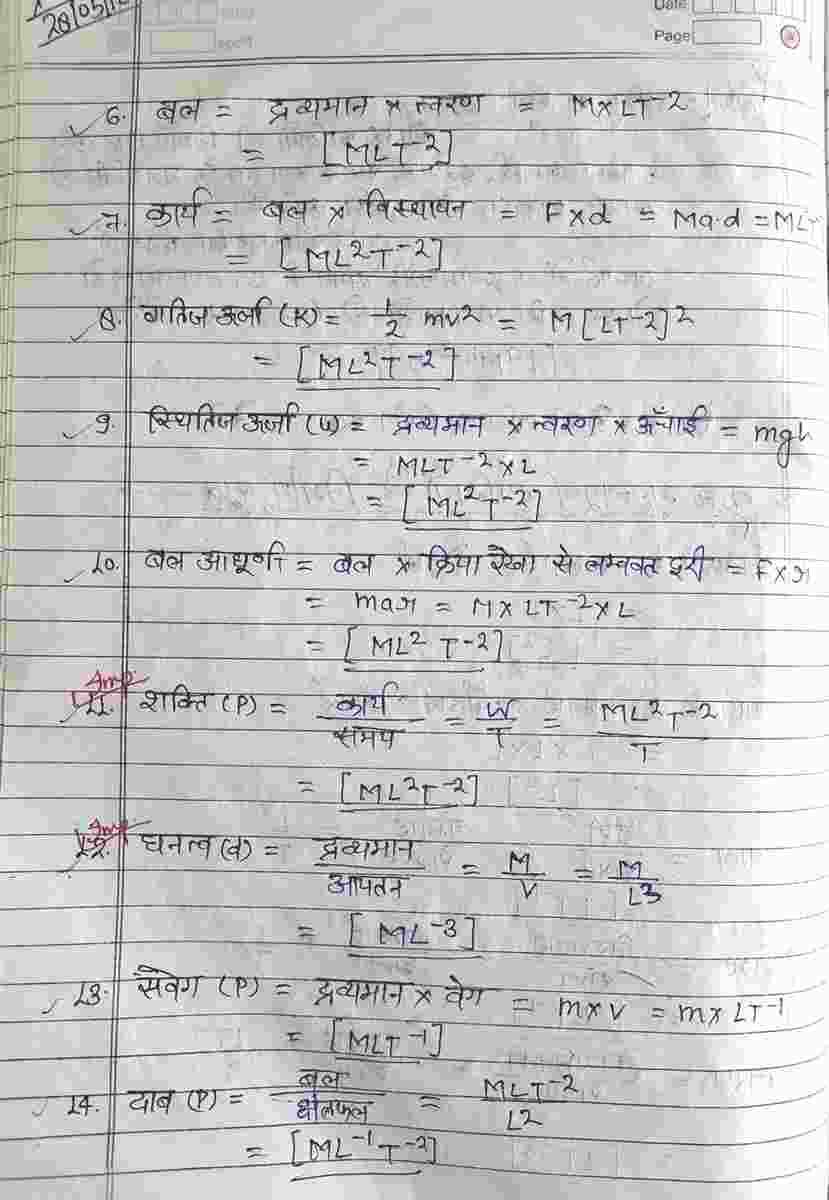 28/05/
Date
Page
6. बल = द्रव्यमान × त्वरण = M×LT⁻²
= [MLT⁻²]
7. कार्य = बल × विस्थापन = F×d = Ma.d = ML
= [ML²T⁻²]
8. गतिज ऊर्जा (K) = 1/2 mv² = M[LT⁻²]²
= [ML²T⁻²]
9. स्थितिज ऊर्जा (U) = द्रव्यमान × त्वरण × ऊँचाई = mgh
= MLT⁻²×L
= [ML²T⁻²]
10. बल आधूर्ण = बल × क्रिया रेखा से लम्बवत दूरी = F×r
= mar = M×LT⁻²×L
= [ML²T⁻²]
Imp
11. शक्ति (P) = कार्य/समय = W/T = ML²T⁻²/T
= [ML²T⁻²]
Imp
12. घनत्व (d) = द्रव्यमान/आयतन = M/V = M/L³
= [ML⁻³]
13. संवेग (P) = द्रव्यमान × वेग = m×v = m×LT⁻¹
= [MLT⁻¹]
14. दाब (P) = बल/क्षेत्रफल = MLT⁻²/L²
= [ML⁻¹T⁻²]